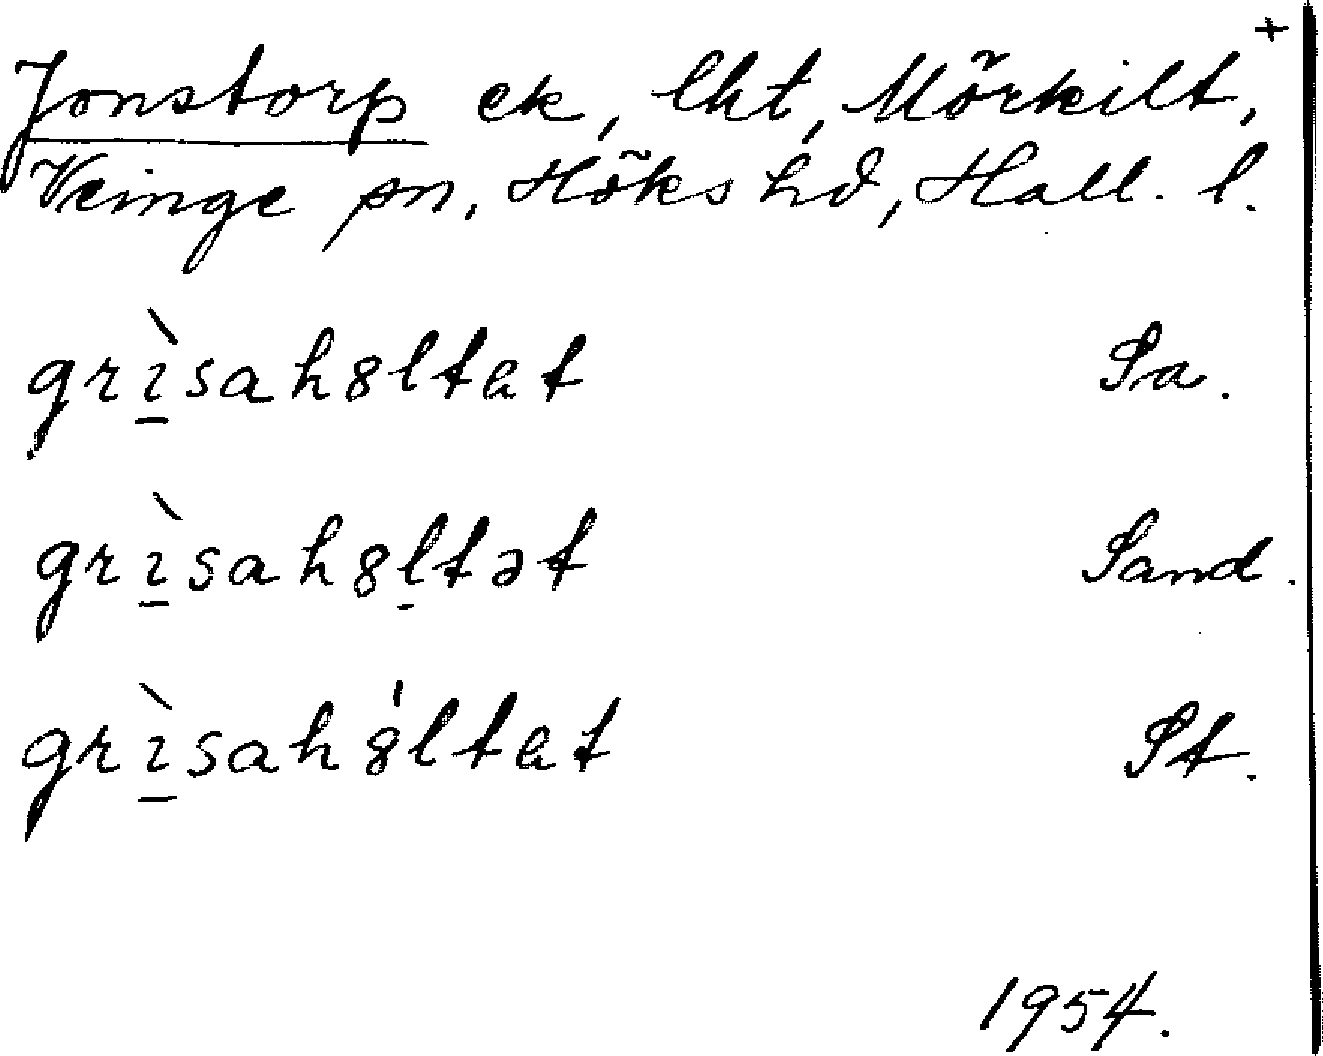 +
Jonstorp ek, lht, Mörkilt,
Veinge sn, Höks hd, Hall. l.
grɩ̱̀sah8ltat Sa.
grɩ̱̀sah8l̠tət Sand.
grɩ̱̀sah8̍ltat St.
1954.